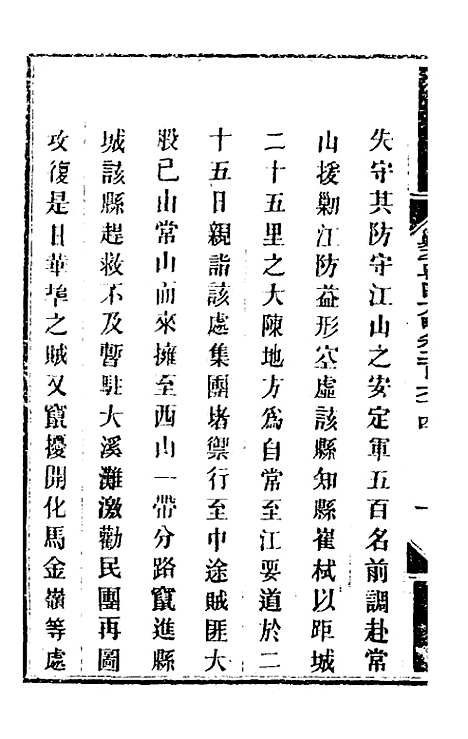 失守其防守江山之安定軍五百名前調赴常
山援勦江防益形空虛該縣知縣崔栻以距城
二十五里之大陳地方為自常至江要道於二
十五日親詣該處集團堵禦行至中途賊匪大
股已由常山而來擁至西山一帶分路竄進縣
城該縣趕救不及暫駐大溪灘激勸民團再圖
攻復是日華埠之賊又竄擾開化馬金嶺等處